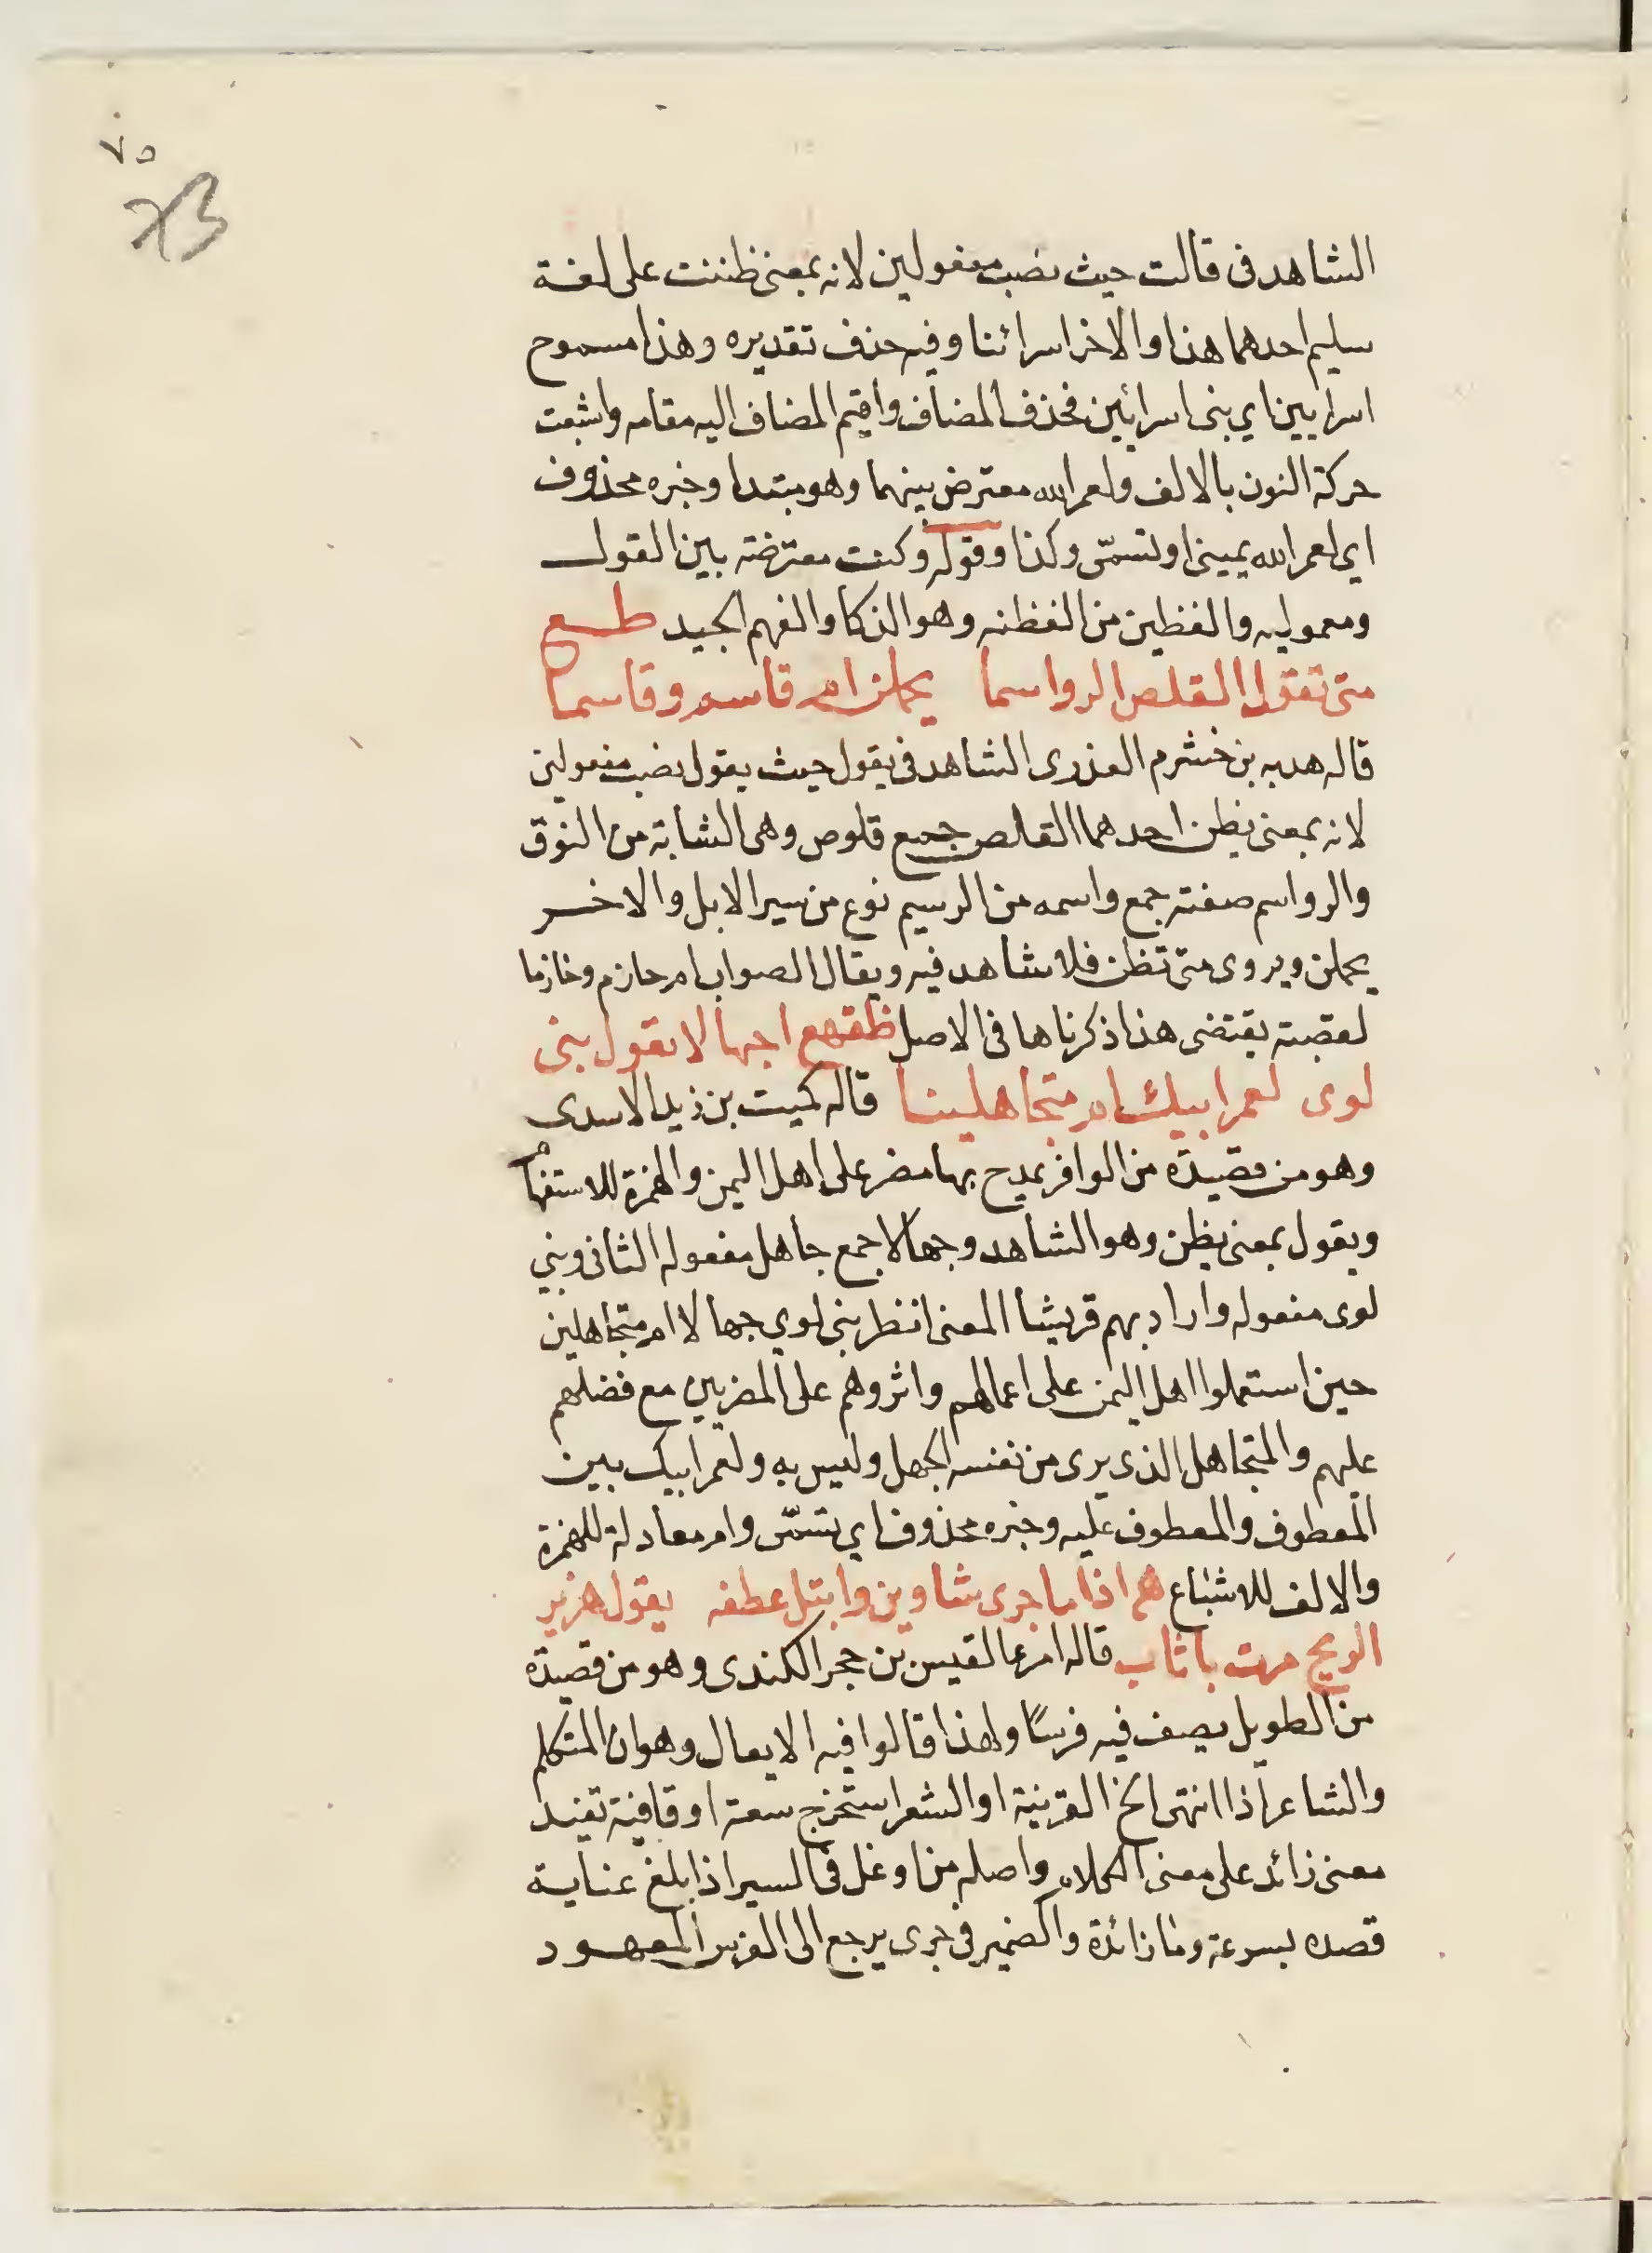 ٧٥
73
الشاهد فى قالت حيث نصب مفعولين لانه بمعنى ظننت على لغة
سليم احدهما هذا والاخر اسرائنا وفيه حذف تقديره وهذا ممسوح
اسرايين اي بنى اسرائين فحذف المضاف واقيم المضاف اليه مقامه واشبعت
حركة النون بالالف ولعمر الله معترض بينهما وهو مبتدا وخبره محذوف
اي لعمر الله يمينى او قسمى وكذا وقوله وكنت معترضة بين القول
ومعموليه والفطين من الفطنه وهو الذكا والفهم الجيد طـع
متى تقول القلص الرواسما يحملن ام قاسم وقاسما
قاله هدبه بن خشرم العذرى الشاهد فى يقول حيث يقول نصب مفعولين
لانه بمعنى يظن احدهما القلص جمع قلوص وهى الشابة من النوق
والرواسم صفته جمع واسمه من الرسيم نوع من سير الابل والاخر
يحملن ويروى متى تظن فلا شاهد فيه ويقال الصواب ام حازم وخازما
لقصة يقتضى هذا ذكرناها فى الاصل ظقهع اجهالا تقول بنى
لوى لعمر ابيك ام متجاهلينا قاله كميت بن زيد الاسدى
وهو من قصيدة من الوافر يمدح بها مضر على اهل اليمن والهمزة للاستفهام
ويقول بمعنى يظن وهو الشاهد وجهالا جمع جاهل مفعوله الثانى وبني
لوى مفعوله واراد بهم قريشا المعنى انظر بنى لوي جهالا ام متجاهلين
حين استعملوا اهل اليمن على اعمالهم واثروهم على المضريين مع فضلهم
عليهم والمتجاهل الذى يرى من نفسه الجهل وليس به ولعمر ابيك بين
المعطوف والمعطوف عليه وخبره محذوف اي قسمى وام معادلة للهمزة
والالف للاشباع هم اذا ما جرى شاوين وابتل عطفه يقول هزيز
الريح مرت باثاب قاله امرء القيس بن حجر الكندى وهو من قصيدة
من الطويل يصف فيه فرسًا ولهذا قالوا فيه الايعال وهو ان المتكلم
والشاعر اذا انتهى القرينة او الشعر استخرج سعة او قافية تفيد
معنى زائد على معنى الكلام واصله من اوغل فى السير اذا بلغ عناية
قصده بسرعة وما زائدة والضمير فى جرى يرجع الى المعهود